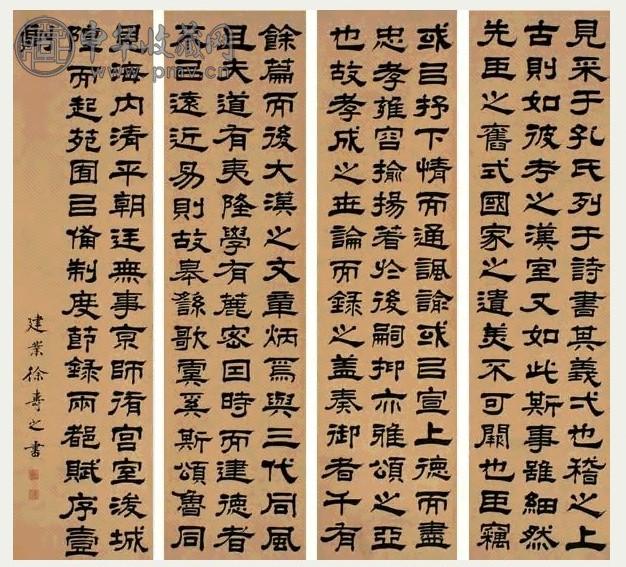 見采于孔氏列于詩書其義弌也稽之上
古則如彼考之漢室又如此斯事雖細然
先臣之舊式國家之遺美不可闕也臣竊
或㠯抒下情而通諷諭或㠯宣上德而盡
忠孝雍容揄揚著於後嗣抑亦雅頌之亞
也故孝成之世論而錄之蓋奏御者千有
餘篇而後大漢之文章炳焉與三代同風
且夫道有夷隆學有麤密因時而建德者
不㠯遠近易則故皋繇歌虞奚斯頌魯同
見海內清平朝廷無事京師脩宮室浚城
隍而起苑囿㠯備制度節錄兩都賦序壹
建業徐壽之書
中华收藏网
www.pmv.cn